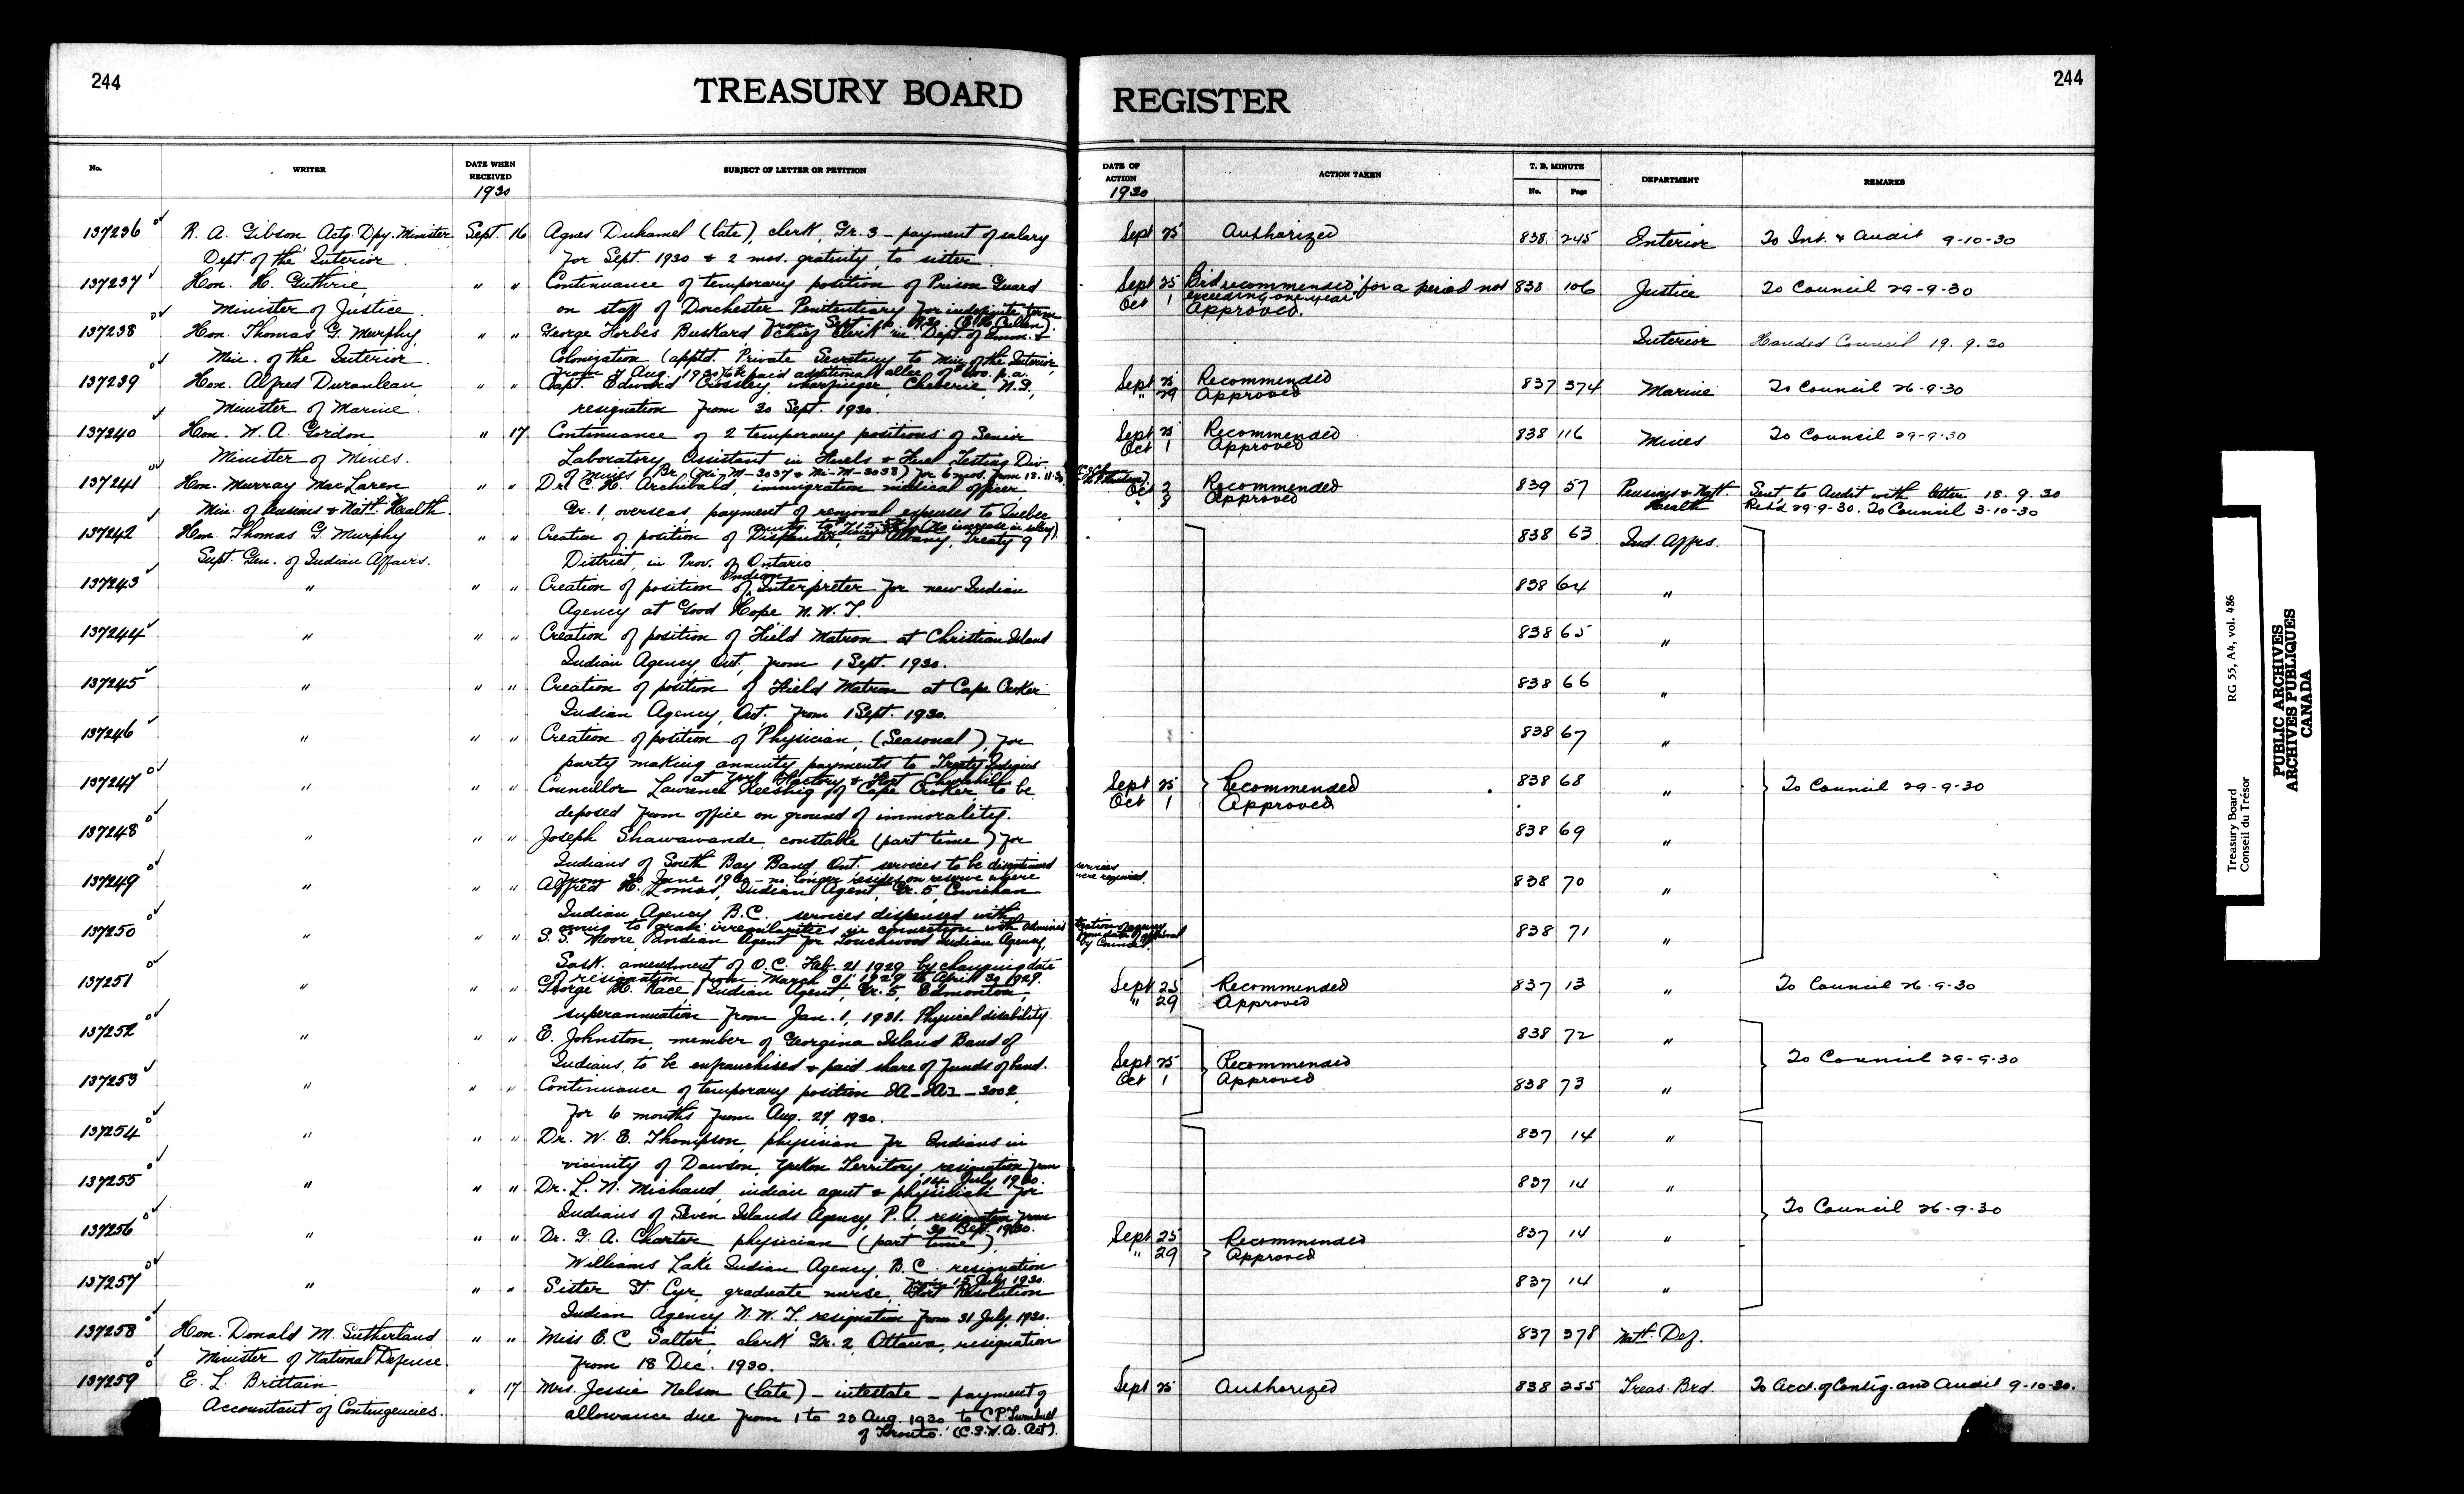 244
TREASURY BOARD
REGISTER
244
No.
WRITER
DATE WHEN RECEIVED
1930
SUBJECT OF LETTER OR PETITION
DATE OF ACTION
1930
ACTION TAKEN
T. B. MINUTE
No.
Page
DEPARTMENT
REMARKS
137236 R. A. Gibson Actg. Dpy. Minister Sept. 16 Agnes Duhamel (late), clerk, Gr. 3 - payment of salary Sept 25 Authorized 838 245 Interior To Int. & Audit 9-10-30
Dept. of the Interior. for Sept. 1930 & 2 mos. gratuity to sister.
137237 Hon. H. Guthrie, " " Continuance of temporary position of Prison Guard Sept 25 recommended "for a period not 838 106 Justice To Council 29-9-30
Minister of Justice. on staff of Dorchester Penitentiary for indefinite term Oct 1 exceeding one year" Approved.
from Sept. 1930.
137238 Hon. Thomas G. Murphy, " " George Forbes Buskard, chief clerk in Dept. of Immn. & Interior Handed Council 19.9.30
Min. of the Interior. Colonization (apptd. Private Secretary to Min. of the Interior
from 7 Aug. 1930) to be paid additional allce. of $600. p.a.
137239 Hon. Alfred Duranleau, " " Capt. Edward Crossley, wharfinger, Cheverie, N.S., Sept 25 Recommended 837 374 Marine To Council 26-9-30
Minister of Marine. resignation from 30 Sept. 1930. " 29 Approved
137240 Hon. W. A. Gordon, " 17 Continuance of 2 temporary positions of Senior Sept 25 Recommended 838 116 Mines To Council 29-9-30
Minister of Mines. Laboratory Assistant in Fuels & Fuel Testing Div. Oct 1 Approved
of Mines Br. (Mi-M-3037 & Mi-M-3038) for 6 mos. from 18.11.30
137241 Hon. Murray MacLaren " " Dr. C. H. Archibald, immigration medical officer, Oct 2 Recommended 839 57 Pensions & Natl. Health Sent to Audit with letter 18.9.30
Min. of Pensions & Natl. Health. Gr. 1, overseas, payment of removal expenses to Quebec " 3 Approved Ret'd 29-9-30. To Council 3-10-30
137242 Hon. Thomas G. Murphy " " Creation of position of Dispenser, at Albany, Treaty 9 838 63 Ind. Affrs.
Supt. Gen. of Indian Affairs. District, in Prov. of Ontario
137243 " " " Creation of position of Indian Interpreter for new Indian 838 64 "
Agency at Good Hope N.W.T.
137244 " " " Creation of position of Field Matron at Christian Island 838 65 "
Indian Agency, Ont. from 1 Sept. 1930.
137245 " " " Creation of position of Field Matron at Cape Croker 838 66 "
Indian Agency, Ont. from 1 Sept. 1930.
137246 " " " Creation of position of Physician, (Seasonal), for 838 67 "
party making annuity payments to Treaty Indians
at York Factory & Fort Churchill
137247 " " " Councillor Lawrence Keeshig of Cape Croker to be Sept 25 Recommended 838 68 " To Council 29-9-30
deposed from office on ground of immorality. Oct 1 Approved
137248 " " " Joseph Shawawande, constable (part time) for 838 69 "
Indians of South Bay Band, Ont. services to be discontinued
from 30 June 1930 - no longer resides on reserve where services were required.
137249 " " " Alfred H. Lomas, Indian Agent, Gr. 5, Cowichan 838 70 "
Indian Agency B.C. services dispensed with
owing to grave irregularities in connection with administration of agency from date of approval by Council.
137250 " " " S. S. Moore, Indian Agent for Touchwood Indian Agency, 838 71 "
Sask. amendment of O.C. Feb. 21 1929 by changing date
of resignation from March 31, 1929 to April 30 1929.
137251 " " " George H. Race, Indian Agent, Gr. 5, Edmonton, Sept 25 Recommended 837 13 " To Council 26-9-30
superannuation from Jan. 1, 1931. Physical disability. " 29 Approved
137252 " " " E. Johnston, member of Georgina Island Band of 838 72 "
Indians, to be enfranchised & paid share of funds of band. Sept 25 Recommended To Council 29-9-30
137253 " " " Continuance of temporary position IA-IA2-3002, Oct 1 Approved 838 73 "
for 6 months from Aug. 27, 1930.
137254 " " " Dr. W. E. Thompson, physician for Indians in 837 14 "
vicinity of Dawson, Yukon Territory, resignation from
14 July 1930.
137255 " " " Dr. L. N. Michaud, indian agent & physician for 837 14 "
Indians of Seven Islands Agency, P.Q. resignation from To Council 26-9-30
30 Sept. 1930.
137256 " " " Dr. G. A. Charter physician (part time) Sept 25 Recommended 837 14 "
Williams Lake Indian Agency, B.C. resignation " 29 Approved
from 15 July 1930.
137257 " " " Sister St. Cyr, graduate nurse, Fort Resolution 837 14 "
Indian Agency N.W.T. resignation from 31 July, 1930.
137258 Hon. Donald M. Sutherland " " Miss E. C. Salter, clerk Gr. 2, Ottawa, resignation 837 378 Natl. Def.
Minister of National Defense. from 18 Dec. 1930.
137259 E. L. Brittain " 17 Mrs. Jessie Nelson (late) - intestate - payment of Sept 25 Authorized 838 255 Treas. Brd. To Acct. of Contig. and Audit 9-10-30.
Accountant of Contingencies. allowance due from 1 to 23 Aug. 1930 to C P Turnbull
of Toronto. (C.S.W.A. Act).
Treasury Board RG 55, A4, vol. 486
Conseil du Trésor
PUBLIC ARCHIVES
ARCHIVES PUBLIQUES
CANADA